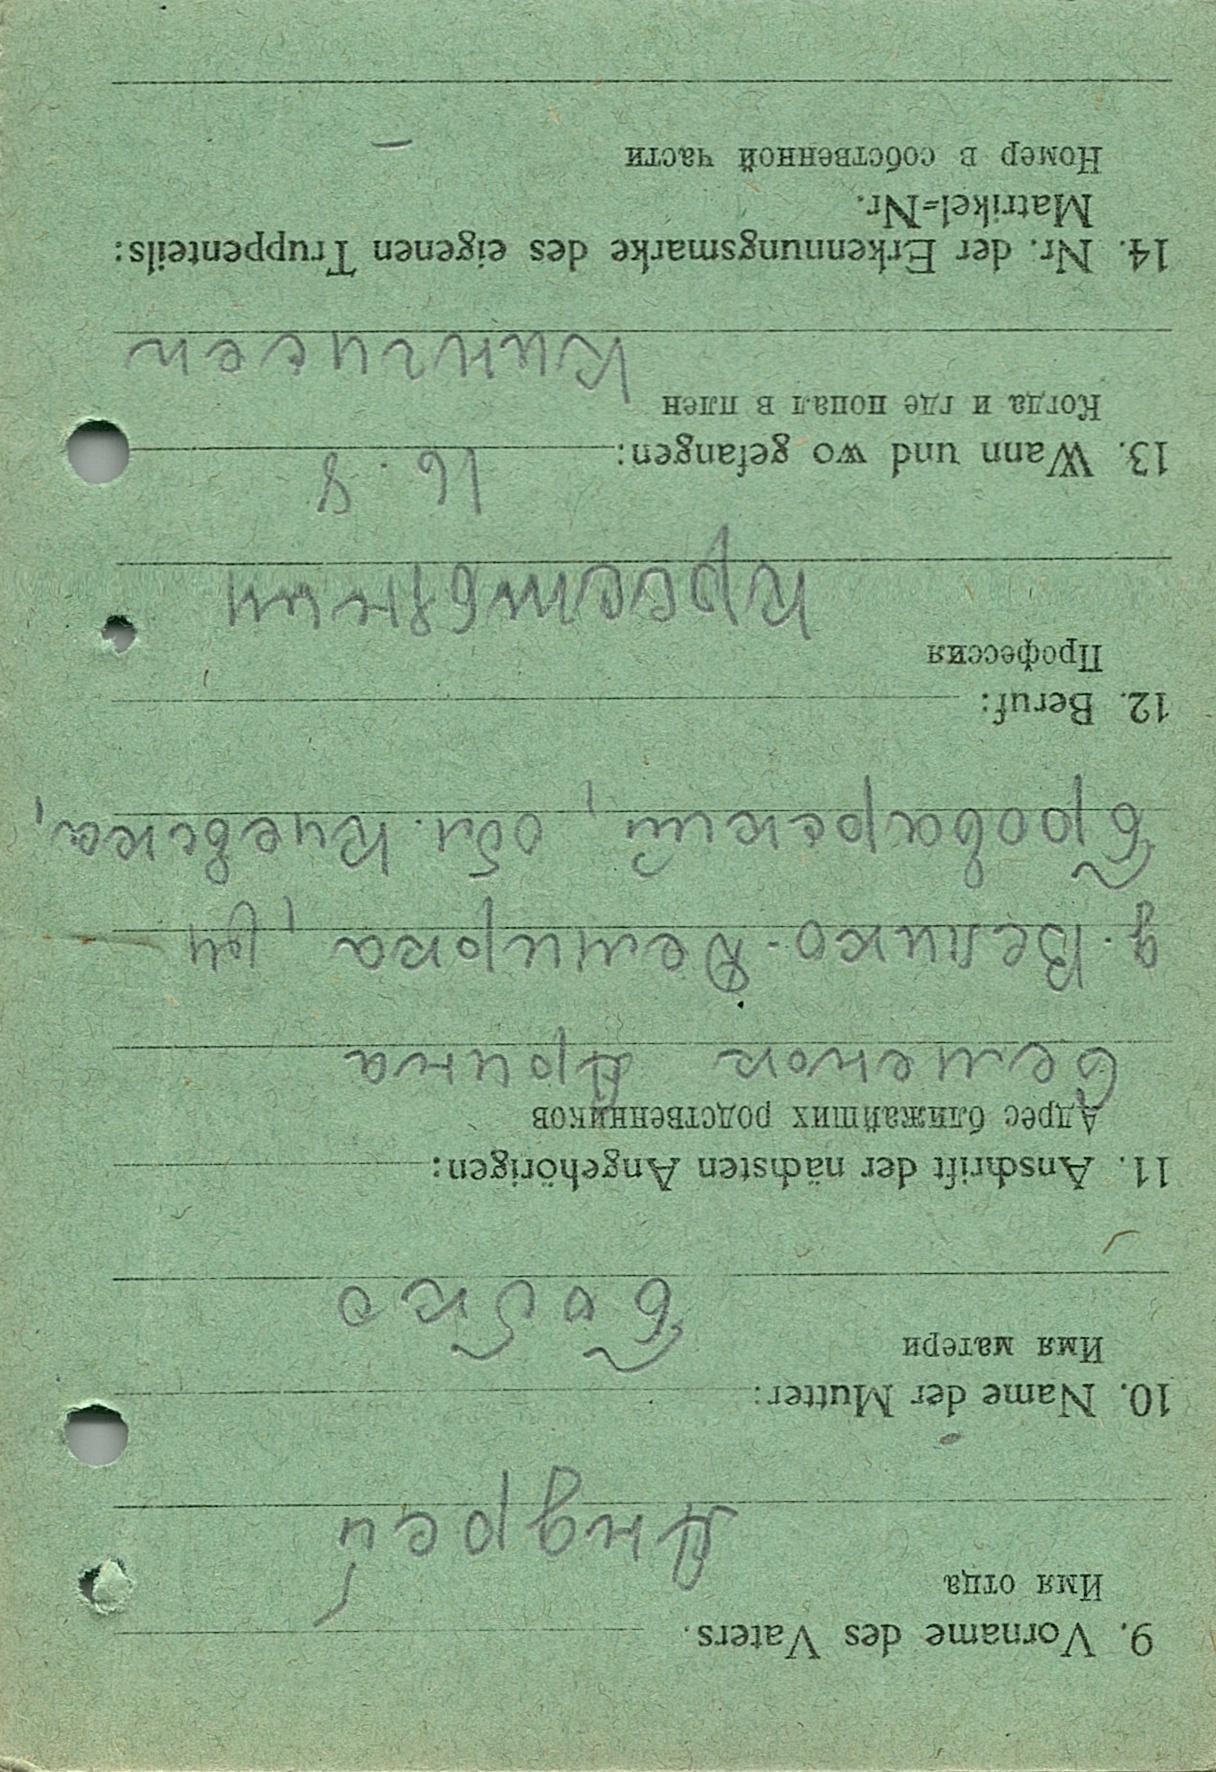 9. Vorname des Vaters.
Имя отца
Андрей
10. Name der Mutter:
Имя матери
Бобко
11. Anschrift der nächsten Angehörigen:
Адрес ближайших родственников
Семенок Арина
д. Велико-Демирка, рн
Броварский, обл. Киевска,
12. Beruf:
Профессия
Крестьянин
13. Wann und wo gefangen:
16. 8
Когда и где попал в плен
Кингисеп
14. Nr. der Erkennungsmarke des eigenen Truppenteils:
Matrikel=Nr.
Номер в собственной части
—